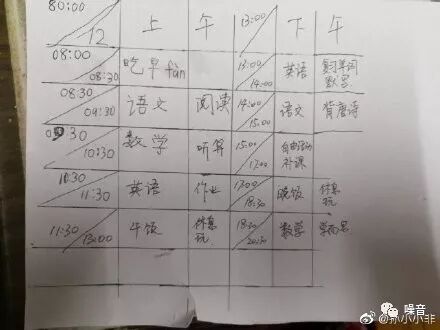 80:00 12 上 午 13:00 下 午
08:00 08:30 吃早fàn 13:00 14:00 英语 复习单词 默写
08:30 09:30 语文 阅读 14:00 15:00 语文 背唐诗
09:30 10:30 数学 听算 15:00 17:00 自由活动 补课
10:30 11:30 英语 作业 17:00 18:30 晚饭 休息 玩
11:30 13:00 午饭 休息 玩 18:30 20:30 数学
噪音
@孙小小非